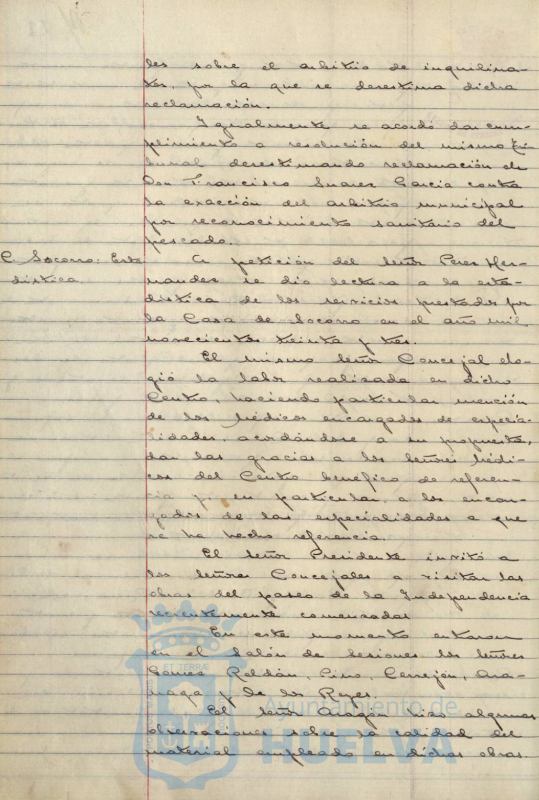 les sobre el arbitrio de inquilina-
tos, por la que se desestima dicha
reclamación.
Igualmente se acordó dar cum-
plimiento a resolución del mismo Tri-
bunal desestimando reclamación de
Don Francisco Suarez Garcia contra
la exacción del arbitrio municipal
por reconocimiento sanitario del
pescado.
C. Socorro: Esta
distica.
A petición del Señor Perez Her-
nandez se dio lectura a la esta-
distica de los servicios prestados por
la Casa de Socorro en el año mil
novecientos treinta y tres.
El mismo Señor Concejal elo-
gió la labor realizada en dicho
Centro, haciendo particular mención
de los Médicos encargados de especia-
lidades, acordándose a su propuesta,
dar las gracias a los Señores Médi-
cos del Centro benefico de referen-
cia y en particular a los encar-
gados de las especialidades a que
se ha hecho referencia.
El Señor Presidente invitó a
los Señores Concejales a visitar las
obras del paseo de la Independencia
recientemente comenzadas
En este momento entraron
en el Salón de Sesiones los Señores
Gomez Roldán, Pino, Cerrejón,
y de los Reyes.
El Señor Aragón hizo algunas
observaciones sobre la calidad del
material empleado en dichas obras.
ET TERRAE
Ayuntamiento de
HUELVA